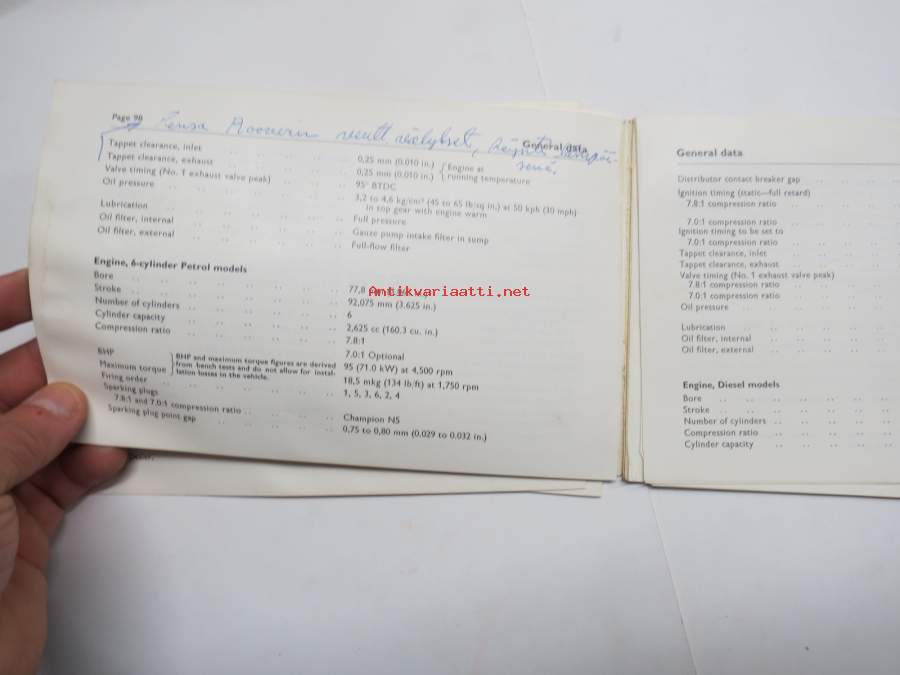 Page 98
General data
Tappet clearance, inlet 0,25 mm (0.010 in.) { Engine at
Tappet clearance, exhaust 0,25 mm (0.010 in.) { running temperature
Valve timing (No. 1 exhaust valve peak) 95° BTDC
Oil pressure 3,2 to 4,6 kg/cm² (45 to 65 lb/sq in.) at 50 kph (30 mph)
in top gear with engine warm
Lubrication Full pressure
Oil filter, internal Gauze pump intake filter in sump
Oil filter, external Full-flow filter
Engine, 6-cylinder Petrol models
Bore 77,8 mm
Stroke 92,075 mm (3.625 in.)
Number of cylinders 6
Cylinder capacity 2,625 cc (160.3 cu. in.)
Compression ratio 7.8:1
7.0:1 Optional
BHP 95 (71.0 kW) at 4,500 rpm
Maximum torque 18,5 mkg (134 lb/ft) at 1,750 rpm
} BHP and maximum torque figures are derived
from bench tests and do not allow for instal-
lation losses in the vehicle.
Firing order 1, 5, 3, 6, 2, 4
Sparking plugs
7.8:1 and 7.0:1 compression ratio Champion N5
Sparking plug point gap 0,75 to 0,80 mm (0.029 to 0.032 in.)
Antikvariaatti.net
General data
Distributor contact breaker gap
Ignition timing (static—full retard)
7.8:1 compression ratio
7.0:1 compression ratio
Ignition timing to be set to
7.0:1 compression ratio
Tappet clearance, inlet
Tappet clearance, exhaust
Valve timing (No. 1 exhaust valve peak)
7.8:1 compression ratio
7.0:1 compression ratio
Oil pressure
Lubrication
Oil filter, internal
Oil filter, external
Engine, Diesel models
Bore
Stroke
Number of cylinders
Compression ratio
Cylinder capacity